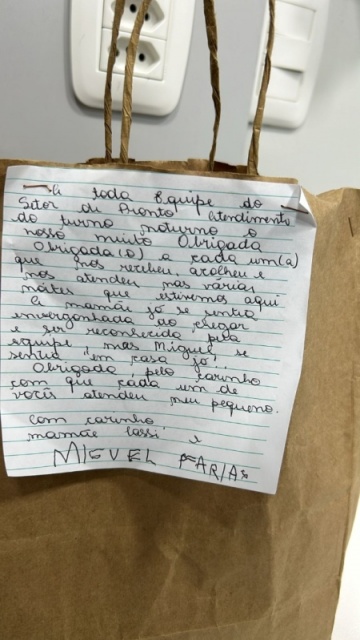 A toda Equipe do
Setor di Pronto Atendimento
do turno noturno o
nosso muito Obrigada
Obrigada(o) a cada um(a)
que nos recebeu, acolheu e
nos atendeu nas várias
noites que estivemos aqui
A mamãe já se sentia
envergonhada ao chegar
e ser reconhecida pela
equipe, mas Miguel se
sentia "em casa já".
Obrigada pelo carinho
com que cada um de
vocês atendeu meu pequeno.
Com carinho
mamãe Cassi e
MIGUEL FARIAS